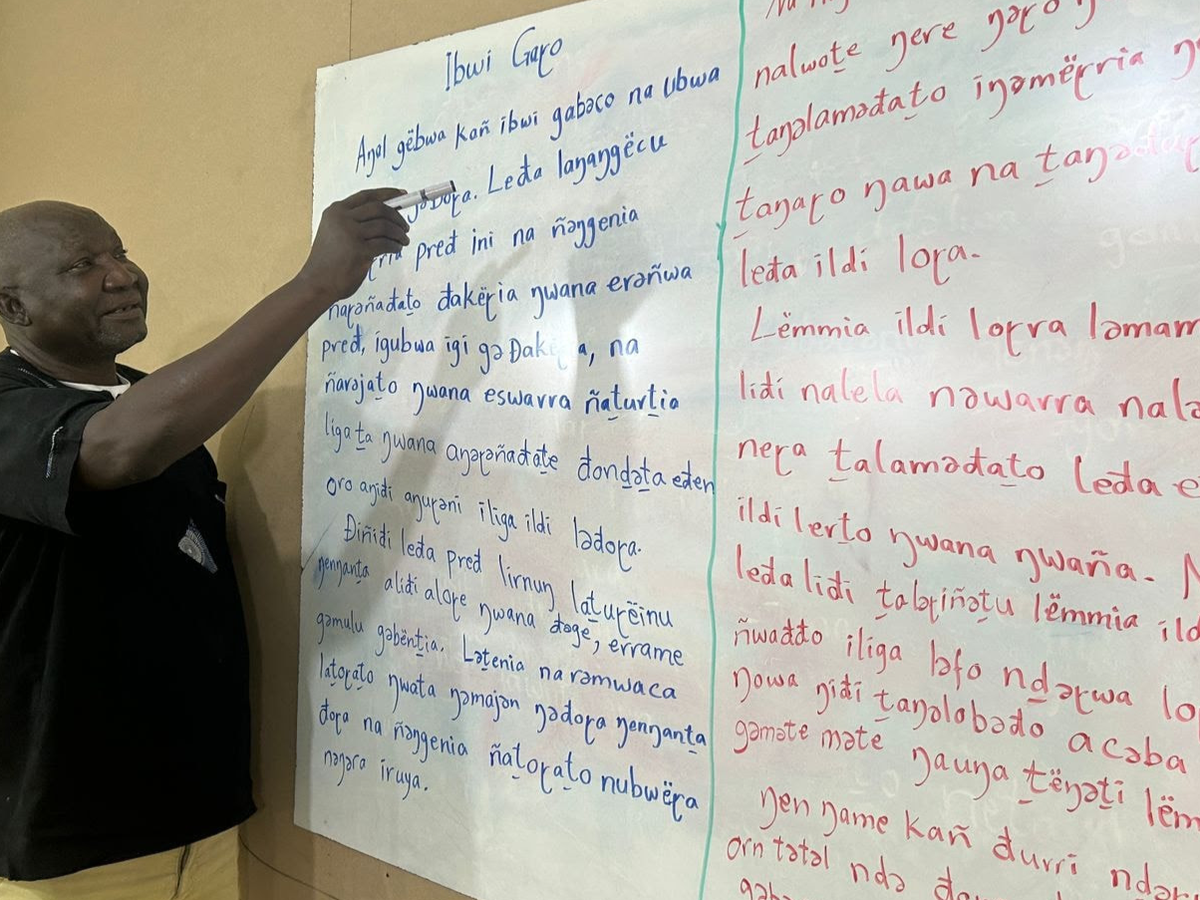 Ibwi Gaɽo
Aŋəl gëbwa kañ ibwi gabəco na ubwa
Leđa laŋaŋgëcu
pređ ini na ñəŋgenia
naɽəñađaṯo đakëɽia ŋwana erəñwa
pređ, igubwa igi gə na
ñarəjaṯo ŋwana eswarra ñaṯurṯiə
ligaṯa ŋwana aŋəɽəñađaṯe đonḏəṯa eđen
oro aŋiđi aŋurəni iliga ildi lədoɽa.
Điñiđi leđa pređ lirnuŋ laṯuɽëinu
ŋenŋanṯa aliđi aloɽe ŋwana đəge, errame
gəmulu gəbënṯia. Ləṯenia narəmwaca
laṯoɽaṯo ŋwaṯa ŋəmajən ŋədoɽa ŋenŋanṯa
đoɽa na ñəŋgenia ñaṯoɽaṯo nubwëɽa
nəŋərə iruya.
nalwoṯe ŋere ŋəɽo
ṯaŋəlaməđaṯo iŋəmëɽria
ṯaŋaɽo ŋawa na
leđa ildi loɽa.
Lëmmia ildi loɽra
liđi nalela nəwarra
neɽa ṯaləməđaṯo leđa
ildi lerṯo ŋwana ŋwaña.
leđa liđi ṯaləɽiñəṯu lëmmia
ñwađđo iliga ləfo nḏəɽwa
ŋowa ŋiđi ṯaŋəlobəđo acəba
gəməte məte ŋauŋa ṯëŋəṯi
Ŋen ŋame kañ đurri
orn təṯəl ndə